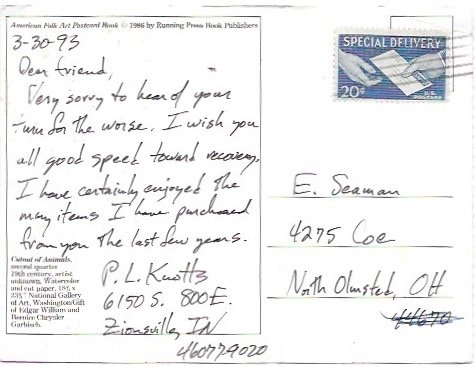 American Folk Art Postcard Book © 1986 by Running Press Book Publishers
3-30-93
Dear friend,
Very sorry to hear of your
turn for the worse. I wish you
all good speed toward recovery.
I have certainly enjoyed the
many items I have purchased
from you the last few years.
Cutout of Animals,
second quarter
19th century, artist
unknown. Watercolor
and cut paper,
National Gallery
of Art, Washington/Gift
of Edgar William and
Bernice Chrysler
Garbisch.
P. L. Knotts
6150 S. 800 E.
Zionsville, IN
460779020
SPECIAL DELIVERY
20¢
U.S.
POSTAGE
E. Seaman
4275 Coe
North Olmsted, OH
44670